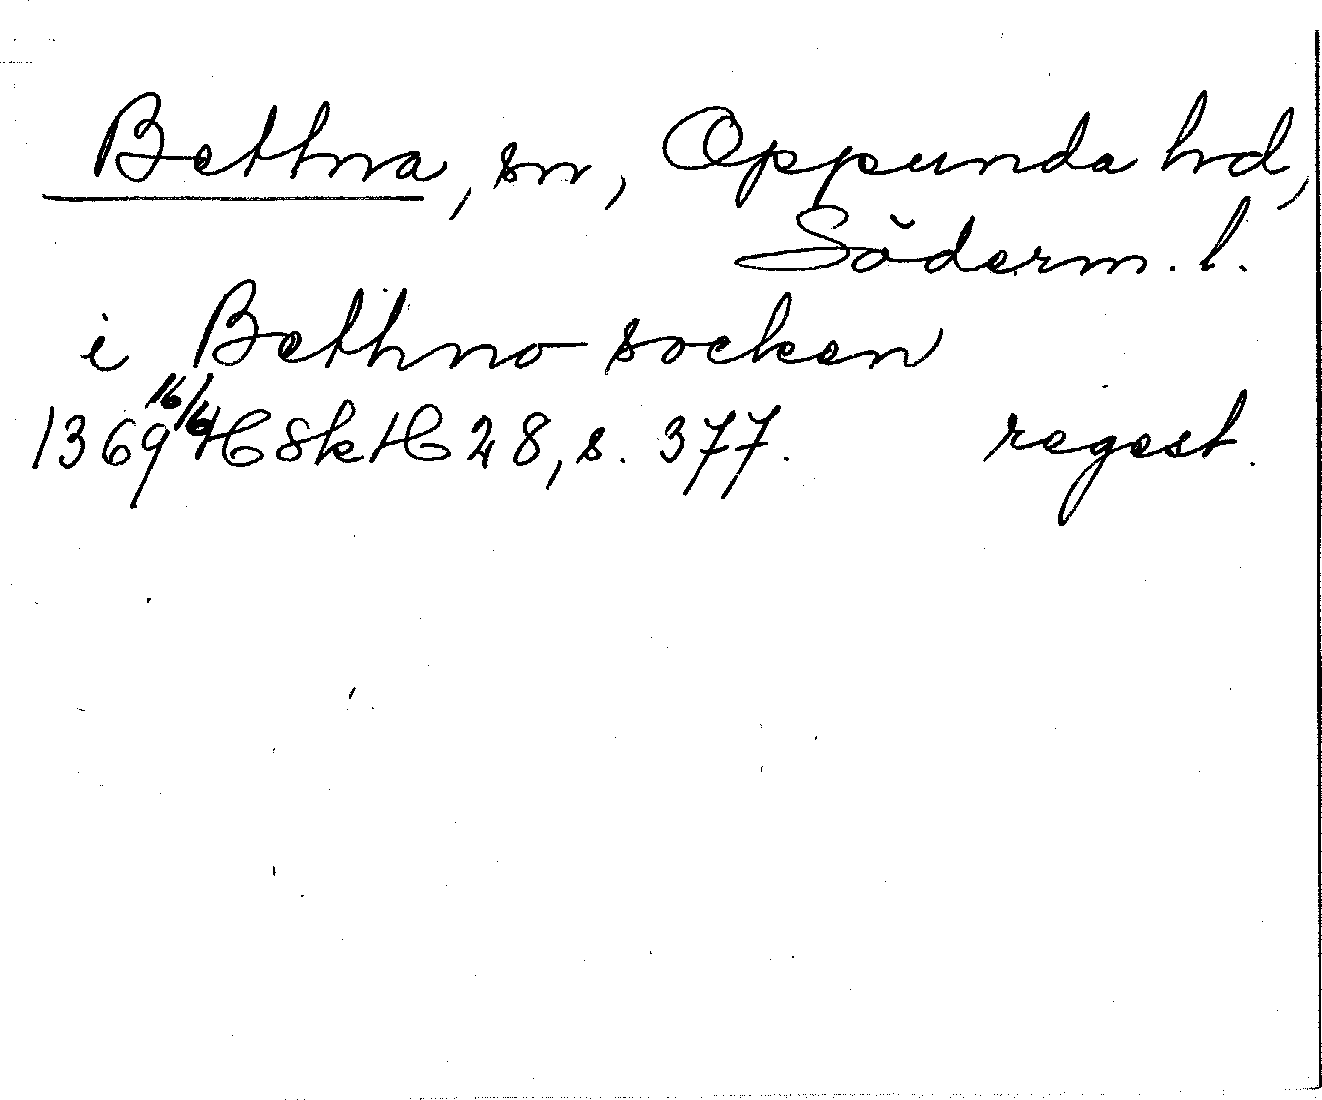 Bettna, sn, Oppunda hd,
Söderm. l.
i Bethno socken
1369 16/6 HSkH 28, s. 377. regest.